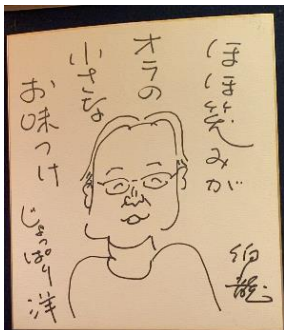 ほほ笑みが
オラの
小さな
お味つけ
じょっぱり洋
伯龍